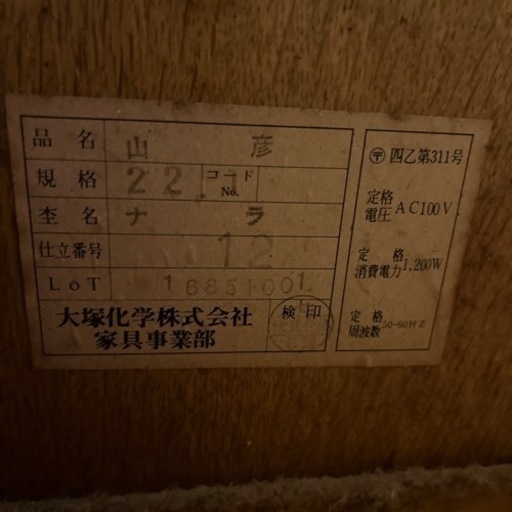 品名 山彦
規格 22. コードNo.
杢名 ナラ
仕立番号 12
LoT 16851001
大塚化学株式会社
家具事業部
検印
〒 四乙第311号
定格電圧 AC100V
定格消費電力 1,200W
定格周波数 50-60HZ